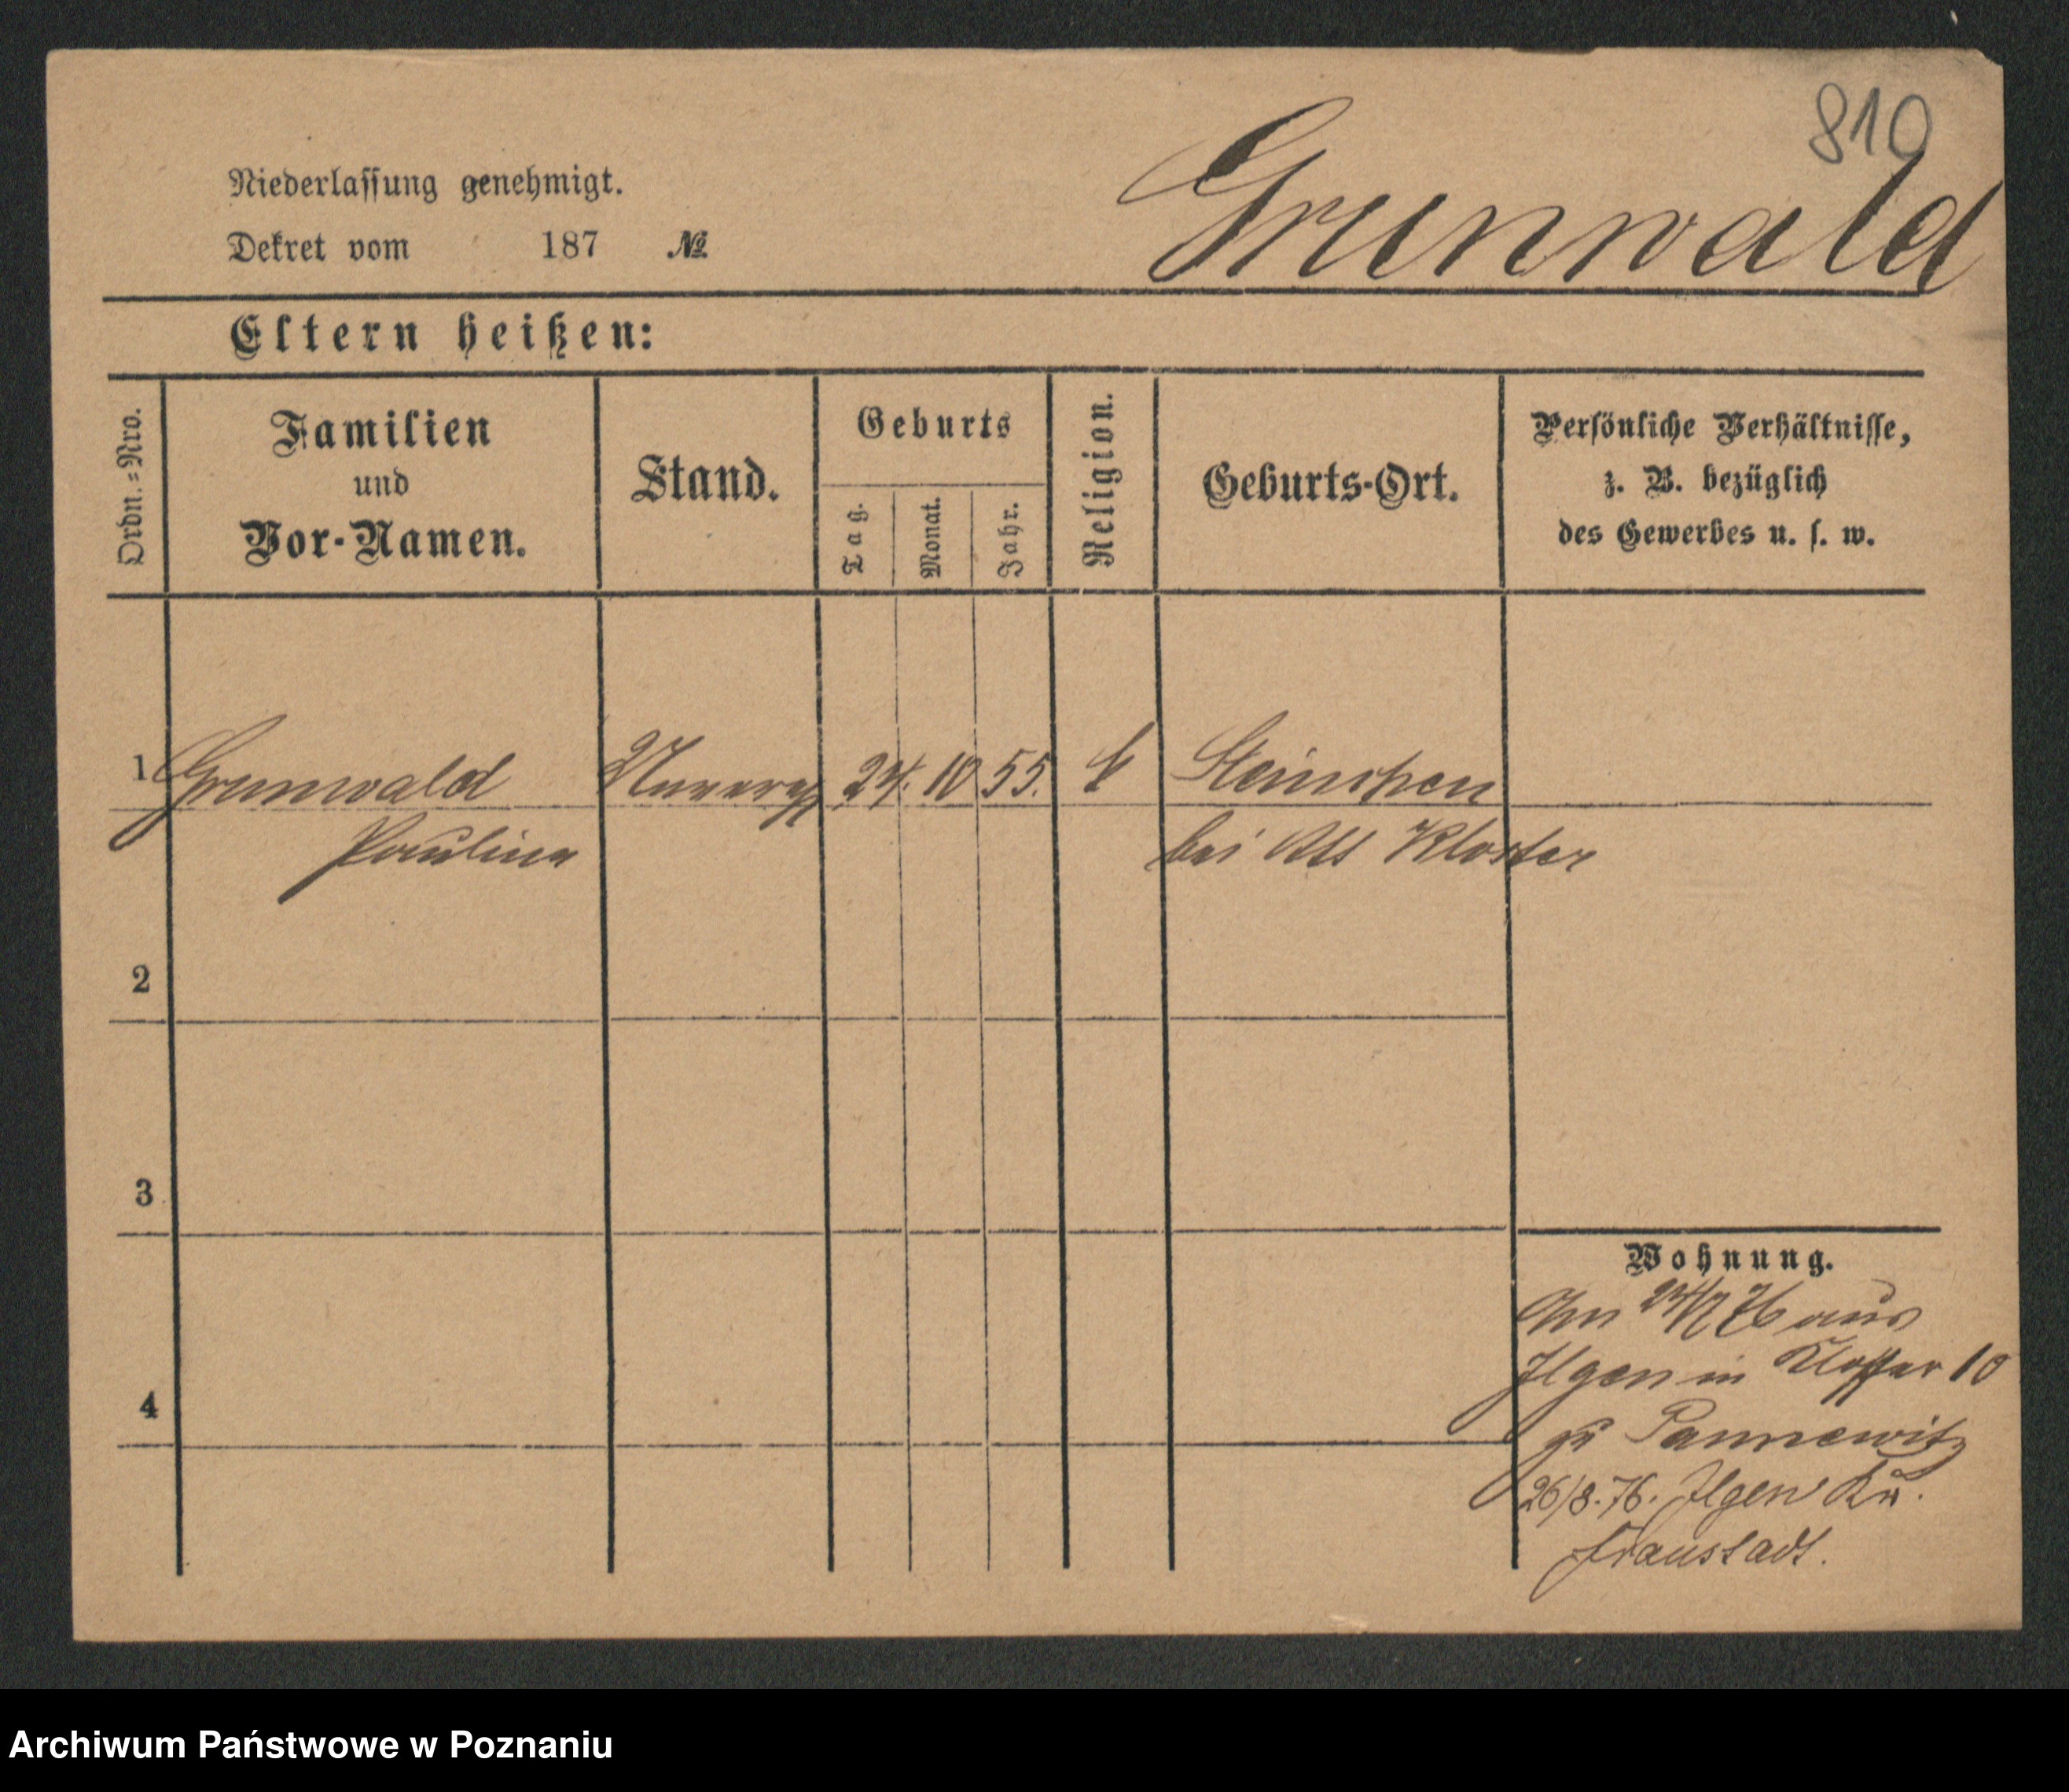 810
Grunwald
Niederlassung genehmigt.
Dekret vom 187 №
Eltern heißen:
Ordn.=Nro.
Familien
und
Vor-Namen.
Stand.
Geburts
Tag.
Monat.
Jahr.
Religion.
Geburts-Ort.
Persönliche Verhältnisse,
z. B. bezüglich
des Gewerbes u. s. w.
1 Grunwald 24. 10 55. Steinchen
Paulina bei Alt Kloster
2
3
4
Wohnung.
Am 24/7 76 aus
Ilgen in Kloster 10
zu Pannewitz
26/8.76. Ilgen Kr.
Fraustadt.
Archiwum Państwowe w Poznaniu